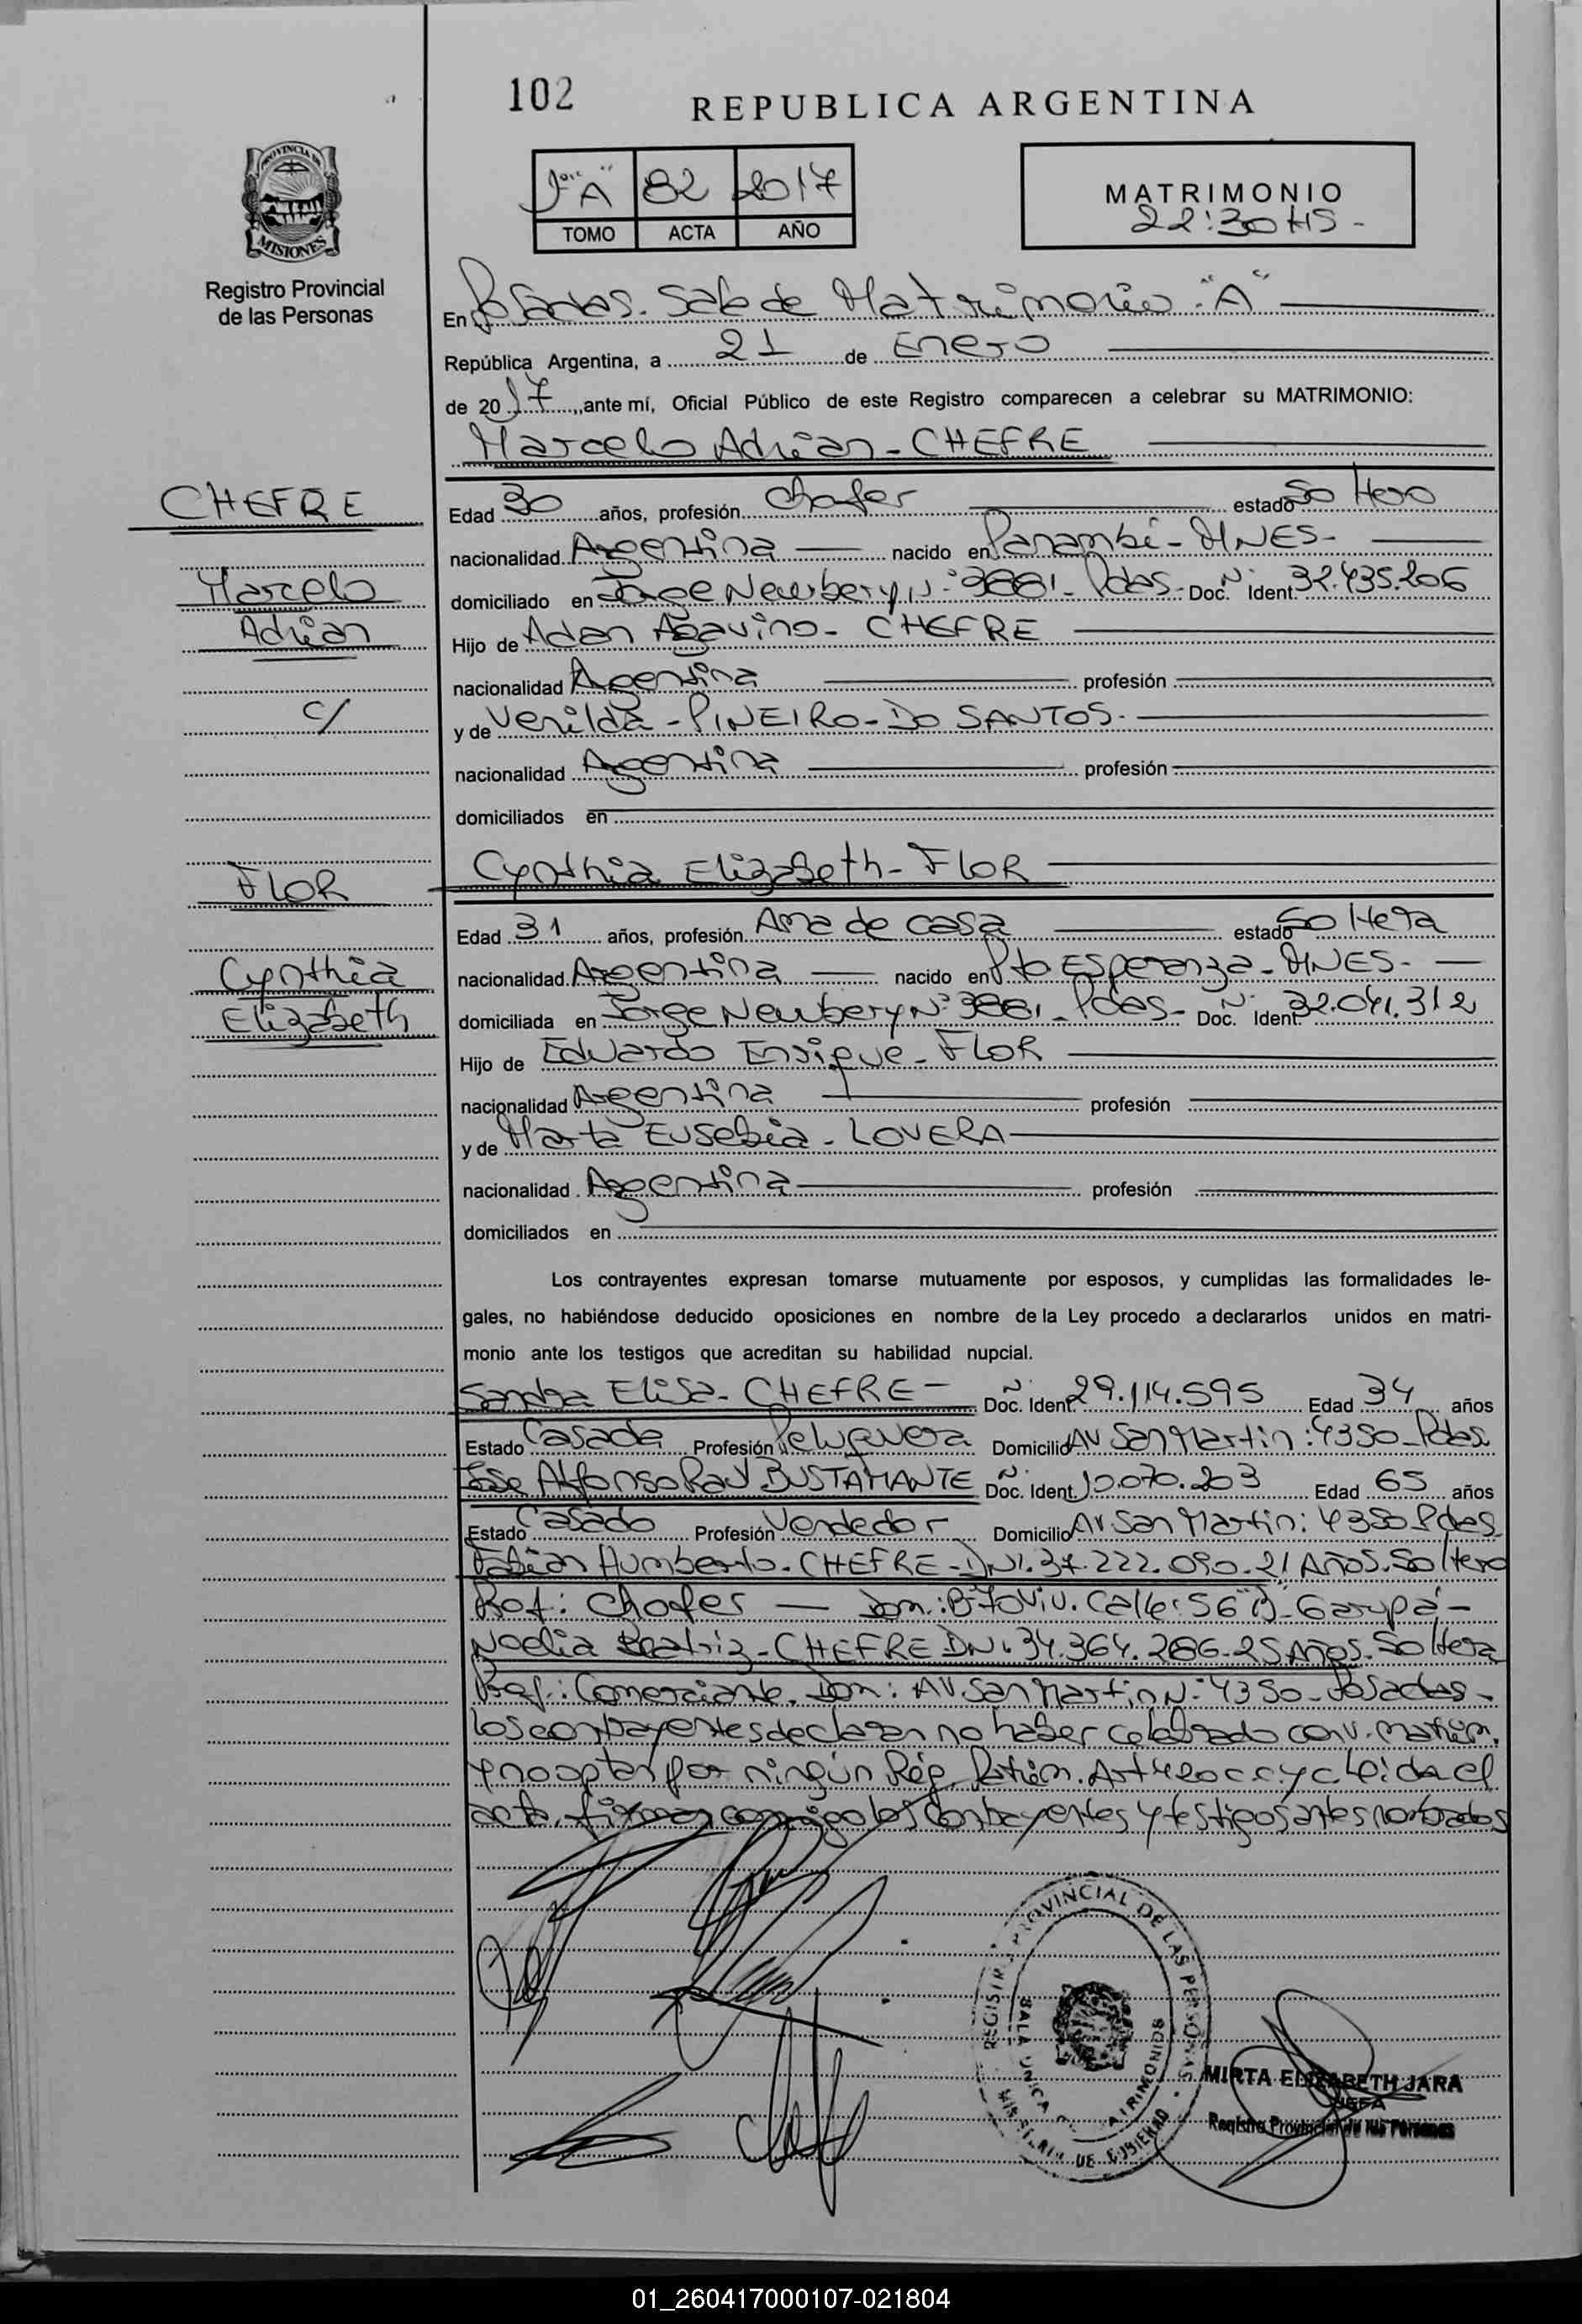 102
REPUBLICA ARGENTINA
1º "A" 82 2017
TOMO ACTA AÑO
MATRIMONIO
22:30 HS -
PROVINCIA DE
MISIONES
Registro Provincial
de las Personas
En Posadas. Sala de Matrimonio "A"
República Argentina, a 21 de Enero
de 2017, ante mí, Oficial Público de este Registro comparecen a celebrar su MATRIMONIO:
Marcelo Adrián - CHEFRE
CHEFRE
Edad 30 años, profesión Chofer estado Soltero
nacionalidad Argentina nacido en Panambí - MNES -
Marcelo
domiciliado en Jorge Newbery N° 3881 - Pdas - Doc. N° Ident. 32.435.206
Adrián
Hijo de Adan - CHEFRE
nacionalidad Argentina profesión
c/
y de Venilda - PINEIRO - DO SANTOS -
nacionalidad Argentina profesión
domiciliados en
Cynthia Elizabeth - FLOR
FLOR
Edad 31 años, profesión Ama de casa estado Soltera
Cynthia
nacionalidad Argentina nacido en Pto Esperanza - MNES -
Elizabeth
domiciliada en Jorge Newbery N° 3881 - Pdas - Doc. N° Ident. 32.041.312
Hijo de Eduardo Enrique - FLOR
nacionalidad Argentina profesión
y de Marta Eusebia - LOVERA
nacionalidad Argentina profesión
domiciliados en
Los contrayentes expresan tomarse mutuamente por esposos, y cumplidas las formalidades le-
gales, no habiéndose deducido oposiciones en nombre de la Ley procedo a declararlos unidos en matri-
monio ante los testigos que acreditan su habilidad nupcial.
Sandra Elisa - CHEFRE - Doc. N° Ident. 29.114.595 Edad 34 años
Estado Casada Profesión Peluquera Domicilio Av San Martin: 4350 - Pdas
Jose Alfonso Raul BUSTAMANTE Doc. N° Ident. 10.070.203 Edad 65 años
Estado Casado Profesión Vendedor Domicilio Av San Martin: 4350 Pdas
Fabián Humberto - CHEFRE - DNI. 37.222.090 - 21 Años. Soltero
Prof: Chofer - Dom.: Bº 70 Viv. Calle: 56 - Garupá -
Noelia Beatriz - CHEFRE DNI. 34.364.286 - 25 Años. Soltera
Prof.: Comerciante. Dom: AV. San Martin N° 4350 - Posadas -
los contrayentes declaran no haber celebrado conv. matrim.
y no optar por ningún Rég. Patrim. Art 420 CC. y C Leida el
acta, firman conmigo los contrayentes y testigos antes nombrados
REGISTRO PROVINCIAL DE LAS PERSONAS
SALA UNICA MATRIMONIOS
MINISTERIO DE GOBIERNO
MIRTA ELIZABETH JARA
JEFA
Registro Provincial de las Personas
01_260417000107-021804